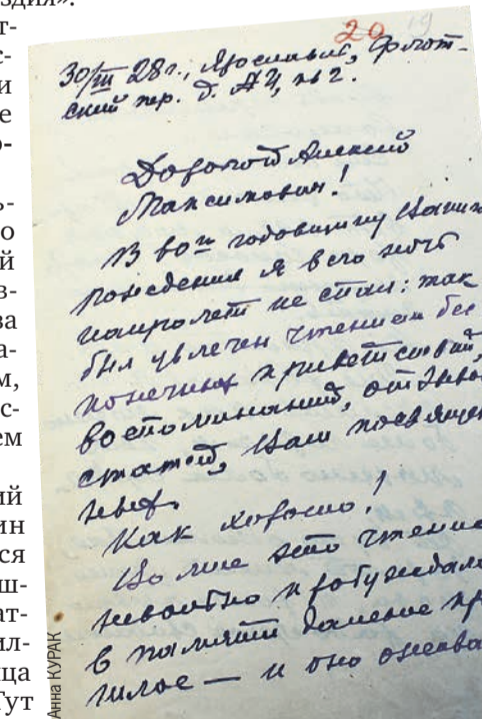 здия".
т-
с-
и
е
о-
ь-
о
й
в-
ва
а-
м,
с-
ем
ий
ин
ся
ш-
ат-
ил-
ца
Тут
Анна КУРАК
20 19
30/III 28 г., Ярославль, Флот-
ский пер. д. 2.
Дорогой Алексей
Максимович!
В годовщину
рождения я всю ночь
напролет не спал: так
был увлечен чтением бес
конечных приветствий,
воспоминаний,
статей, Вам посвящен
ных.
Как хорошо!
Но мне это чтение
невольно пробуждало
в памяти далекое про
шлое — и оно ожива